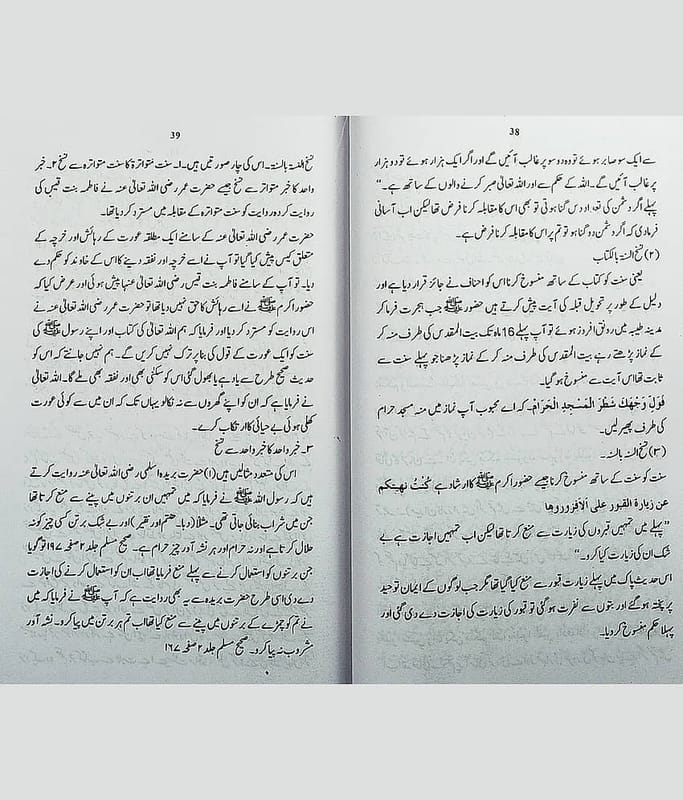 38
سے ایک سو صابر ہوئے تو وہ دو سو پر غالب آئیں گے اور اگر ایک ہزار ہوئے تو دو ہزار
پر غالب آئیں گے۔ اللہ کے حکم سے اور اللہ تعالیٰ صبر کرنے والوں کے ساتھ ہے۔"
پہلے اگر دشمن کی تعداد دس گنا ہوتی تو بھی اس کا مقابلہ کرنا فرض تھا لیکن اب آسانی
فرما دی کہ اگر دشمن دو گنا ہو تو تم پر اس کا مقابلہ کرنا فرض ہے۔
(۲) نسخ السنۃ بالکتاب
یعنی سنت کو کتاب کے ساتھ منسوخ کرنا اس کو احناف نے جائز قرار دیا ہے اور
دلیل کے طور پر تحویل قبلہ کی آیت پیش کرتے ہیں حضور ﷺ جب ہجرت فرما کر
مدینہ طیبہ میں رونق افروز ہوئے تو آپ پہلے 16 ماہ تک بیت المقدس کی طرف منہ کر
کے نماز پڑھتے رہے بیت المقدس کی طرف منہ کر کے نماز پڑھنا جو پہلے سنت سے
ثابت تھا اس آیت سے منسوخ ہو گیا۔
فَوَلِّ وَجْهَكَ شَطْرَ الْمَسْجِدِ الْحَرَامِ۔ کہ اے محبوب آپ نماز میں منہ مسجد حرام
کی طرف پھیر لیں۔
(۳) نسخ السنۃ بالسنۃ۔
سنت کو سنت کے ساتھ منسوخ کرنا جیسے حضور اکرم ﷺ کا ارشاد ہے کُنْتُ نهيتكم
عن زيارة القبور علی الافزوروها
"پہلے میں تمہیں قبروں کی زیارت سے منع کرتا تھا لیکن اب تمہیں اجازت ہے بے
شک ان کی زیارت کیا کرو۔"
اس حدیث پاک میں پہلے زیارت قبور سے منع کیا گیا تھا مگر جب لوگوں کے ایمان توحید
پر پختہ ہو گئے اور بتوں سے نفرت ہو گئی تو قبور کی زیارت کی اجازت دے دی گئی اور
پہلا حکم منسوخ کر دیا۔
39
نسخ السنۃ بالسنۃ۔ اس کی چار صورتیں ہیں۔ ۱۔ سنت متواترۃ کا سنت متواترہ سے نسخ ۲۔ خبر
واحد کا خبر متواتر سے نسخ جیسے حضرت عمر رضی اللہ تعالیٰ عنہ نے فاطمہ بنت قیس کی
روایت کردہ روایت کو سنت متواترہ کے مقابلہ میں مسترد کر دیا تھا۔
حضرت عمر رضی اللہ تعالیٰ عنہ کے سامنے ایک مطلقہ عورت کے رہائش اور خرچہ کے
متعلق کیس پیش کیا گیا تو آپ نے اسے خرچہ اور نفقہ دینے کا اس کے خاوند کو حکم دے
دیا۔ تو آپ کے سامنے فاطمہ بنت قیس رضی اللہ تعالیٰ عنہا پیش ہوئی اور عرض کیا کہ
حضور اکرم ﷺ نے اسے رہائش کا حق نہیں دیا تھا تو حضرت عمر رضی اللہ تعالیٰ عنہ نے
اس روایت کو مسترد کر دیا اور فرمایا کہ ہم اللہ تعالیٰ کی کتاب اور اپنے رسول ﷺ کی
سنت کو ایک عورت کے قول کی بنا پر ترک نہیں کریں گے۔ ہم نہیں جانتے کہ اس کو
حدیث صحیح طرح سے یاد ہے یا بھول گئی اس کو سکنٰی بھی اور نفقہ بھی ملے گا۔ اللہ تعالیٰ
نے فرمایا ہے کہ ان کو اپنے گھروں سے نہ نکالو یہاں تک کہ ان میں سے کوئی عورت
کھلی ہوئی بے حیائی کا ارتکاب کرے۔
۳۔ خبر واحد کا خبر واحد سے نسخ
اس کی متعدد مثالیں ہیں (۱) حضرت بریدہ اسلمی رضی اللہ تعالیٰ عنہ روایت کرتے
ہیں کہ رسول اللہ ﷺ نے فرمایا کہ میں تمہیں ان برتنوں میں پینے سے منع کرتا تھا
جن میں شراب بنائی جاتی تھی۔ مثلاً (دبا۔ حنتم اور نقیر) اور بے شک برتن کسی چیز کو نہ
حلال کرتا ہے اور نہ حرام اور ہر نشہ آور چیز حرام ہے۔ صحیح مسلم جلد ۲ صفحہ ۱۶۷ تو گویا
جن برتنوں کو استعمال کرنے سے پہلے منع فرمایا تھا اب ان کو استعمال کرنے کی اجازت
دے دی اسی طرح حضرت بریدہ سے یہ بھی روایت ہے کہ آپ ﷺ نے فرمایا کہ میں
نے تم کو چمڑے کے برتنوں میں پینے سے منع کیا تھا اب تم ہر برتن میں پیا کرو۔ نشہ آور
مشروب نہ پیا کرو۔ صحیح مسلم جلد ۲ صفحہ ۱۶۷